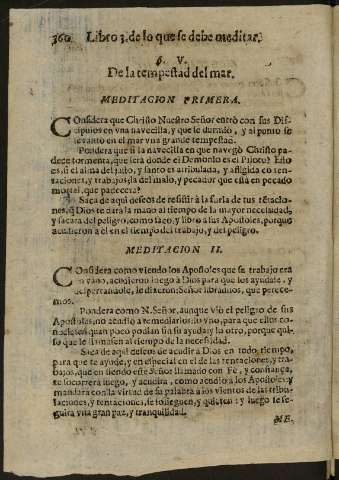 360 Libro 3. de lo que se debe meditar.
§. V.
De la tempestad del mar.
MEDITACION PRIMERA.
Considera que Christo Nuestro Señor entró con sus Dis-
cipulos en vna navecilla, y que se durmió, y al punto se
levantò en el mar vna grande tempestad.
Pondera que si la navecilla en que navegò Christo pa-
dece tormenta, que serà donde el Demonio es el Piloto? Esto
es, si el alma del justo, y santo es atribulada, y afligida cō ten-
taciones, y trabajos, la del malo, y pecador que està en pecado
mortal, que padecerà?
Saca de aqui deseos de resistir à la furia de tus tētacio-
nes, q̄ Dios te darà la mano al tiempo de la mayor necesidad,
y sacarà del peligro, como sacò, y librò à sus Apostoles, porque
acudieron à èl en el tiempo del trabajo, y del peligro.
MEDITACION II.
Considera como viendo los Apostoles que su trabajo era
en vano, acudieron luego à Dios para que los ayudase, y
despertandole, le dixeron: Señor libranos, que perece-
mos.
Pondera como N. Señor, aunque viò el peligro de sus
Apostoles, no acudiò à remediarlos; lo vno, para que ellos co-
nociesen quan poco podian sin su ayuda; y lo otro, porque qui-
so que le llamasen al tiempo de la necesidad.
Saca de aqui deseos de acudir à Dios en todo tiempo,
para que te ayude, y en especial en el de las tentaciones, y tra-
bajos, que en siendo este Señor llamado con Fè, y confiança,
te socorrerà luego, y acudirà, como acudiò à los Apostoles: y
mandarà con la virtud de su palabra à los vientos de las tribu-
laciones, y tentaciones, se sosieguen, y quieten: y luego se se-
guirà vna gran paz, y tranquilidad.
ME-